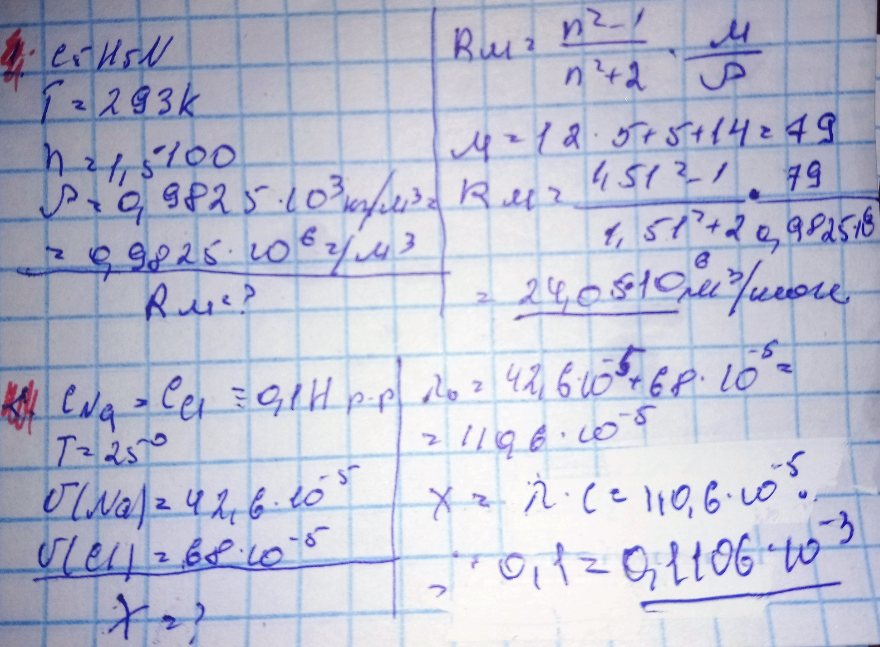 1. C5H5N
T = 293K
n = 1,5100
ρ = 0,9825·10³ кг/м³ =
= 0,9825·10⁶ г/м³
Rм = ?
Rм = n²-1 / n²+2 · м / ρ
м = 12·5+5+14 = 79
Rм = 1,51²-1 / 1,51²+2 · 79 / 0,9825·10⁶
= 24,05·10⁶ м³/моль
C Na = C Cl = 0,1Н р-р
T = 25°
U(Na) = 42,6·10⁻⁵
U(Cl) = 68·10⁻⁵
χ = ?
λ₀ = 42,6·10⁻⁵ + 68·10⁻⁵ =
= 110,6·10⁻⁵
χ = λ·C = 110,6·10⁻⁵·
= · 0,1 = 0,1106·10⁻³